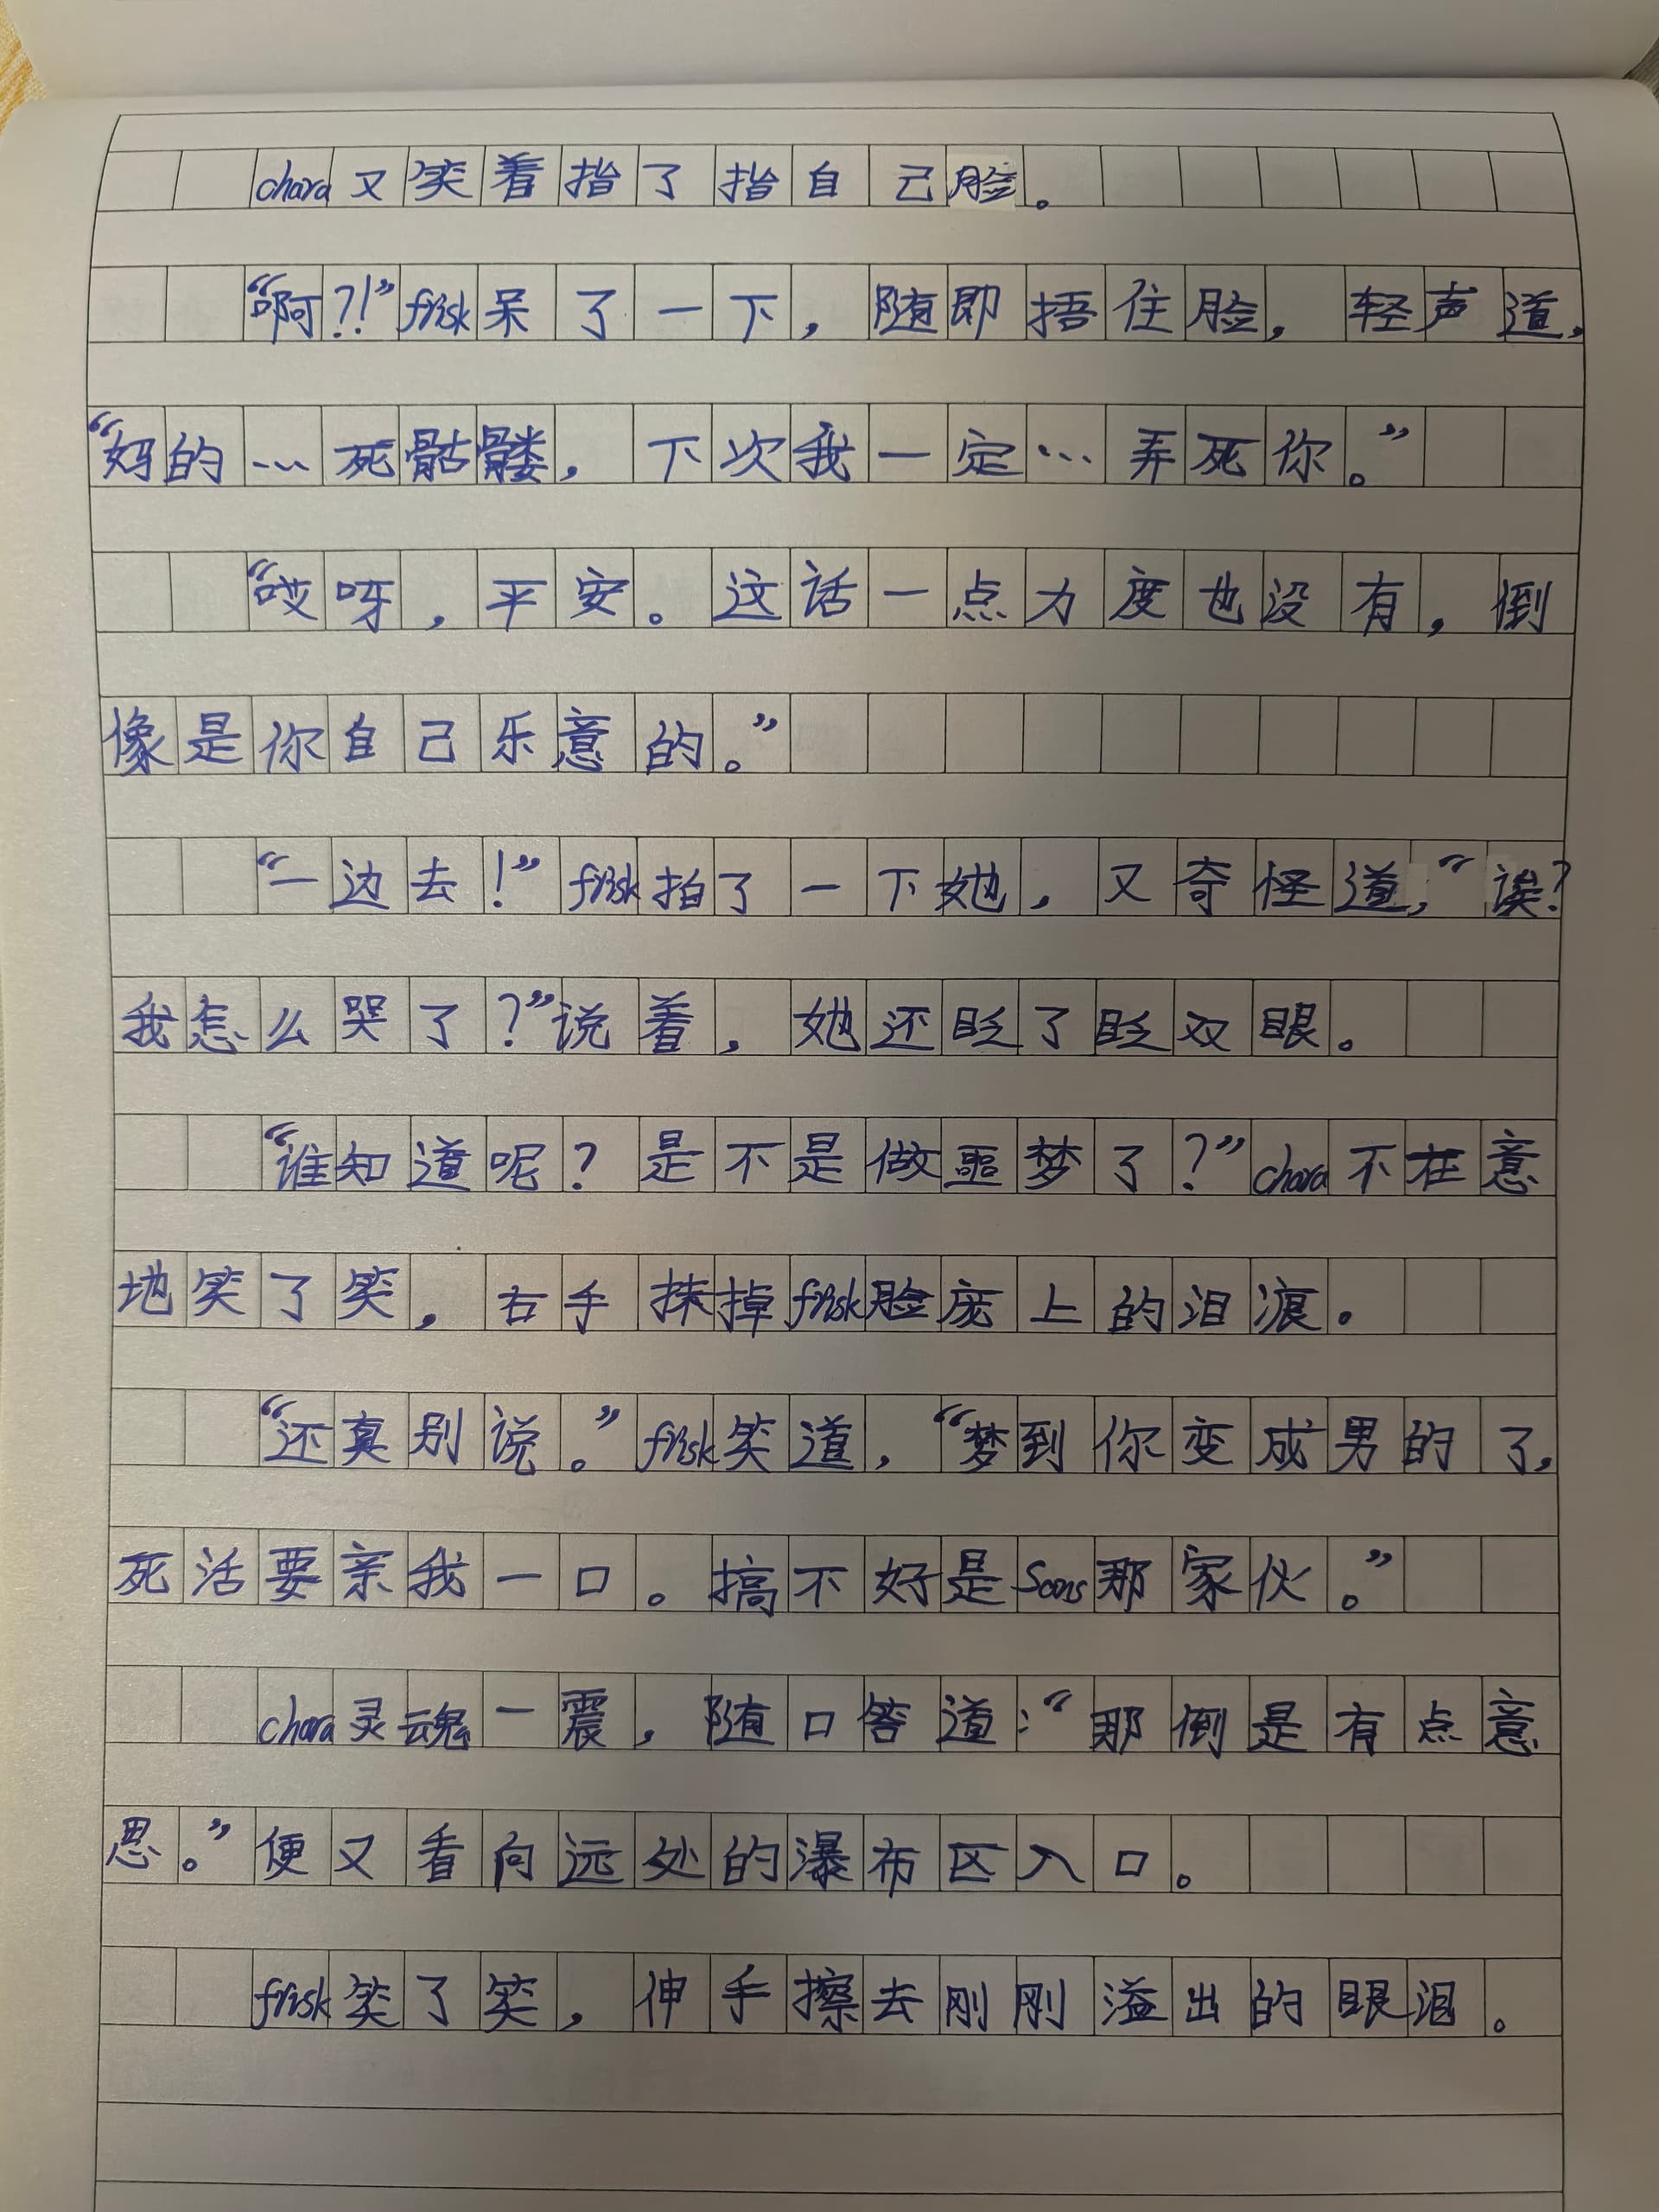 chara又笑着指了指自己脸。
“啊?!”frisk呆了一下，随即捂住脸，轻声道，
“妈的…死骷髅，下次我一定…弄死你。”
“哎呀，平安。这话一点力度也没有，倒
像是你自己乐意的。”
“一边去！”frisk拍了一下她，又奇怪道，“诶？
我怎么哭了？”说着，她还眨了眨双眼。
“谁知道呢？是不是做噩梦了？”chara不在意
地笑了笑，右手抹掉frisk脸庞上的泪痕。
“还真别说。”frisk笑道，“梦到你变成男的了，
死活要亲我一口。搞不好是Sans那家伙。”
chara灵魂一震，随口答道：“那倒是有点意
思。”便又看向远处的瀑布区入口。
frisk笑了笑，伸手擦去刚刚溢出的眼泪。